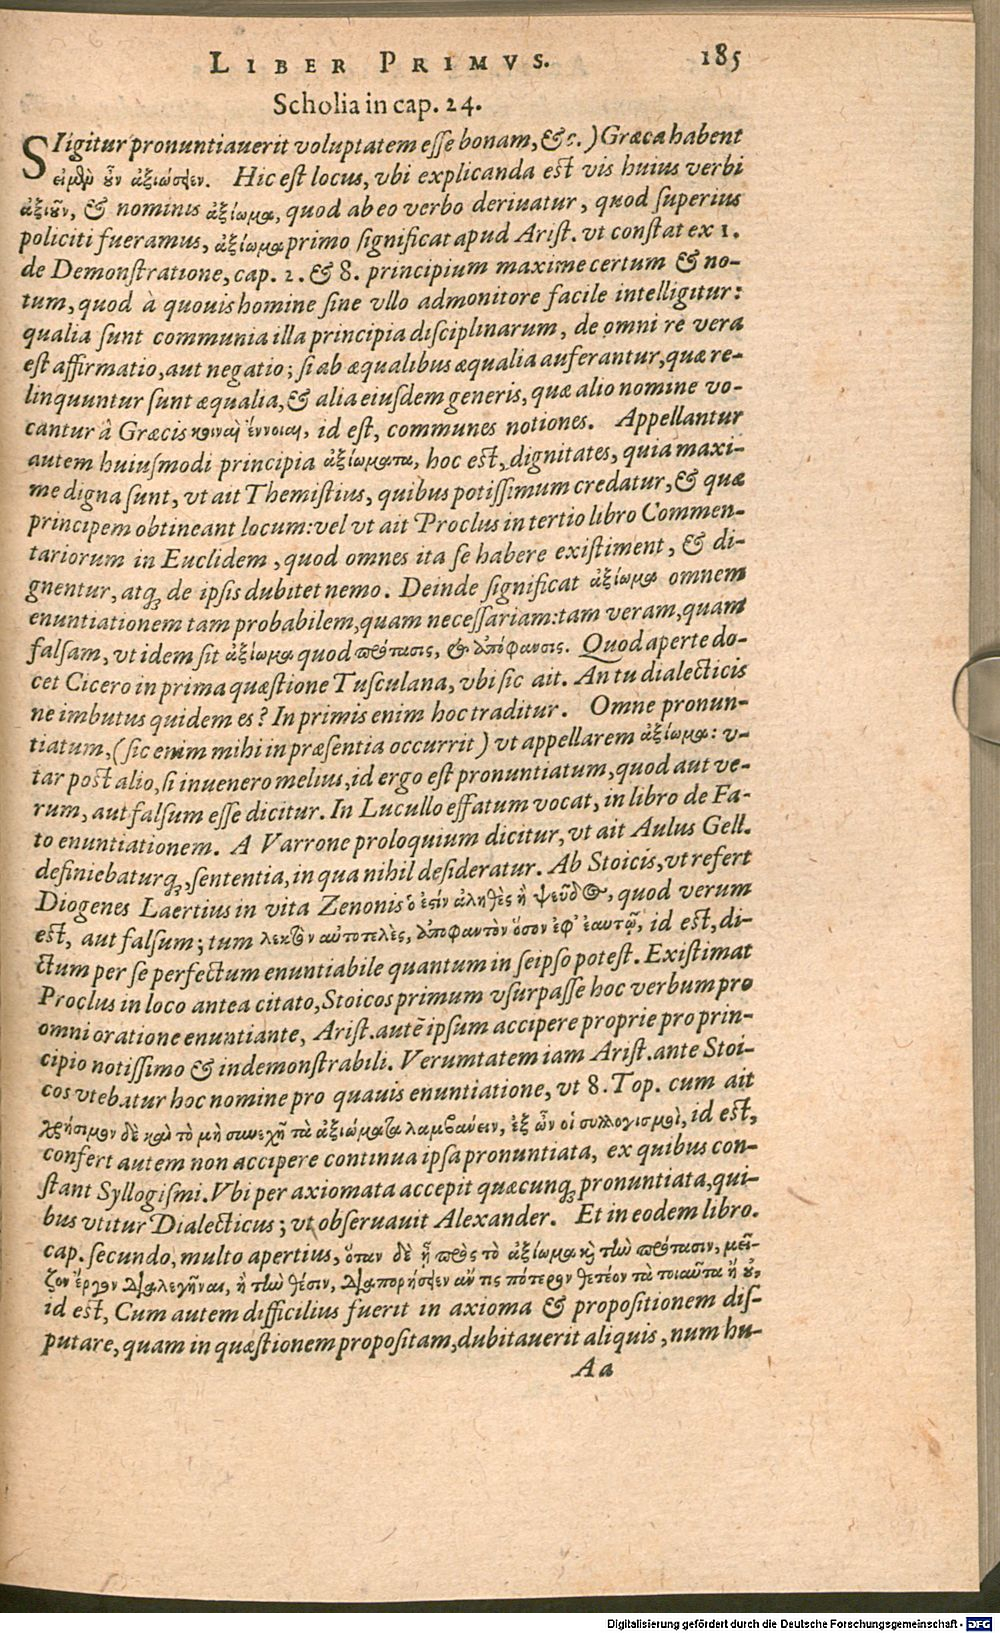 LIBER PRIMVS. 185
Scholia in cap. 24.
SI igitur pronuntiauerit voluptatem esse bonam, &c.) Græca habent
εἰ μὲν οὖν ἀξιώσειεν. Hic est locus, vbi explicanda est vis huius verbi
ἀξιοῦν, & nominis ἀξίωμα, quod ab eo verbo deriuatur, quod superius
policiti fueramus, ἀξίωμα primo significat apud Arist. vt constat ex 1.
de Demonstratione, cap. 2. & 8. principium maxime certum & no-
tum, quod à quouis homine sine vllo admonitore facile intelligitur:
qualia sunt communia illa principia disciplinarum, de omni re vera
est affirmatio, aut negatio; si ab æqualibus æqualia auferantur, quæ re-
linquuntur sunt æqualia, & alia eiusdem generis, quæ alio nomine vo-
cantur à Græcis κοιναὶ ἔννοιαι, id est, communes notiones. Appellantur
autem huiusmodi principia ἀξίωματα, hoc est, dignitates, quia maxi-
me digna sunt, vt ait Themistius, quibus potissimum credatur, & quæ
principem obtineant locum: vel vt ait Proclus in tertio libro Commen-
tariorum in Euclidem, quod omnes ita se habere existiment, & di-
gnentur, atq; de ipsis dubitet nemo. Deinde significat ἀξίωμα omnem
enuntiationem tam probabilem, quam necessariam: tam veram, quam
falsam, vt idem sit ἀξίωμα quod πρότασις, & ἀπόφανσις. Quod aperte do-
cet Cicero in prima quæstione Tusculana, vbi sic ait. An tu dialecticis
ne imbutus quidem es? In primis enim hoc traditur. Omne pronun-
tiatum, (sic enim mihi in præsentia occurrit) vt appellarem ἀξίωμα: v-
tar post alio, si inuenero melius, id ergo est pronuntiatum, quod aut ve-
rum, aut falsum esse dicitur. In Lucullo effatum vocat, in libro de Fa-
to enuntiationem. A Varrone proloquium dicitur, vt ait Aulus Gell.
definiebaturq;, sententia, in qua nihil desideratur. Ab Stoicis, vt refert
Diogenes Laertius in vita Zenonis ὅ ἐστὶν ἀληθὲς ἢ ψεῦδος, quod verum
est, aut falsum; tum λεκτὸν αὐτοτελὲς, ἀποφαντὸν ὅσον ἐφ' ἑαυτῷ, id est, di-
ctum per se perfectum enuntiabile quantum in seipso potest. Existimat
Proclus in loco antea citato, Stoicos primum vsurpasse hoc verbum pro
omni oratione enuntiante, Arist. autē ipsum accipere proprie pro prin-
cipio notissimo & indemonstrabili. Verumtatem iam Arist. ante Stoi-
cos vtebatur hoc nomine pro quauis enuntiatione, vt 8. Top. cum ait
χρήσιμον δὲ καὶ τὸ μὴ συνεχῆ τὰ ἀξιώματα λαμβάνειν, ἐξ ὧν οἱ συλλογισμοὶ, id est,
confert autem non accipere continua ipsa pronuntiata, ex quibus con-
stant Syllogismi. Vbi per axiomata accepit quæcunq; pronuntiata, qui-
bus vtitur Dialecticus; vt obseruauit Alexander. Et in eodem libro.
cap. secundo, multo apertius, ὅταν δὲ ᾖ πρὸς τὸ ἀξίωμα καὶ τὴν πρότασιν, μεῖ-
ζον ἔργον διαλεγῆναι, ἢ τὴν θέσιν, διαπορήσειεν ἄν τις πότερον θετέον τὰ τοιαῦτα ἢ οὔ,
id est, Cum autem difficilius fuerit in axioma & propositionem dis-
putare, quam in quæstionem propositam, dubitauerit aliquis, num hu-
Aa
Digitalisierung gefördert durch die Deutsche Forschungsgemeinschaft - DFG